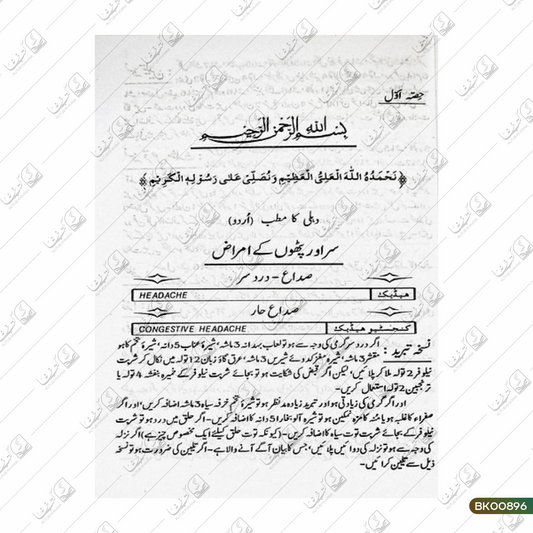 حصّہ اوّل
بسم اللہ الرحمٰن الرحیم
﴿نَحْمَدُهُ اللهَ الْعَلِيَّ الْعَظِيْمَ وَنُصَلِّيْ عَلٰى رَسُوْلِهِ الْكَرِيْمِ﴾
دہلی کا مطب (اُردو)
سر اور پٹھوں کے امراض
صداع - درد سر
HEADACHE ھیڈیک
صداع حار
CONGESTIVE HEADACHE کنجسٹیو ھیڈیک
نسخہ تبرید : اگر درد سر گرمی کی وجہ سے ہو تو لعاب بہدانہ 3 ماشہ، شیرۂ عناب 5 دانہ، شیرۂ تخم کاہو
مقشر 3 ماشہ، شیرہ مغز کدوئے شیریں 3 ماشہ، عرق گاؤ زبان 12 تولہ میں نکال کر شربت
نیلوفر 2 تولہ ملا کر پلائیں، لیکن اگر قبض کی شکایت ہو تو بجائے شربت نیلوفر کے خمیرہ بنفشہ 4 تولہ یا
ترنجبین 2 تولہ استعمال کریں۔
اور اگر گرمی کی زیادتی ہو اور تبرید زیادہ مدنظر ہو تو شیرۂ تخم خرفہ سیاہ 3 ماشہ اضافہ کریں، اور اگر
صفراء کا غلبہ ہو یا منہ کا مزہ نمکین ہو تو شیرہ آلو بخارا 5 دانہ کا اضافہ کریں۔ اگر حلق میں درد ہو تو شربت
نیلوفر کے بجائے شربت توت سیاہ کا اضافہ کریں۔ (کیونکہ توت حلق کیلئے ایک مخصوص چیز ہے) اگر نزلہ
کی وجہ سے ہو تو نزلہ کی دوائیں پلائیں، جس کا بیان آگے آنے والا ہے۔ اگر تلیین کی ضرورت ہو تو نسخہ
ذیل سے تلیین کرائیں۔
BK00896